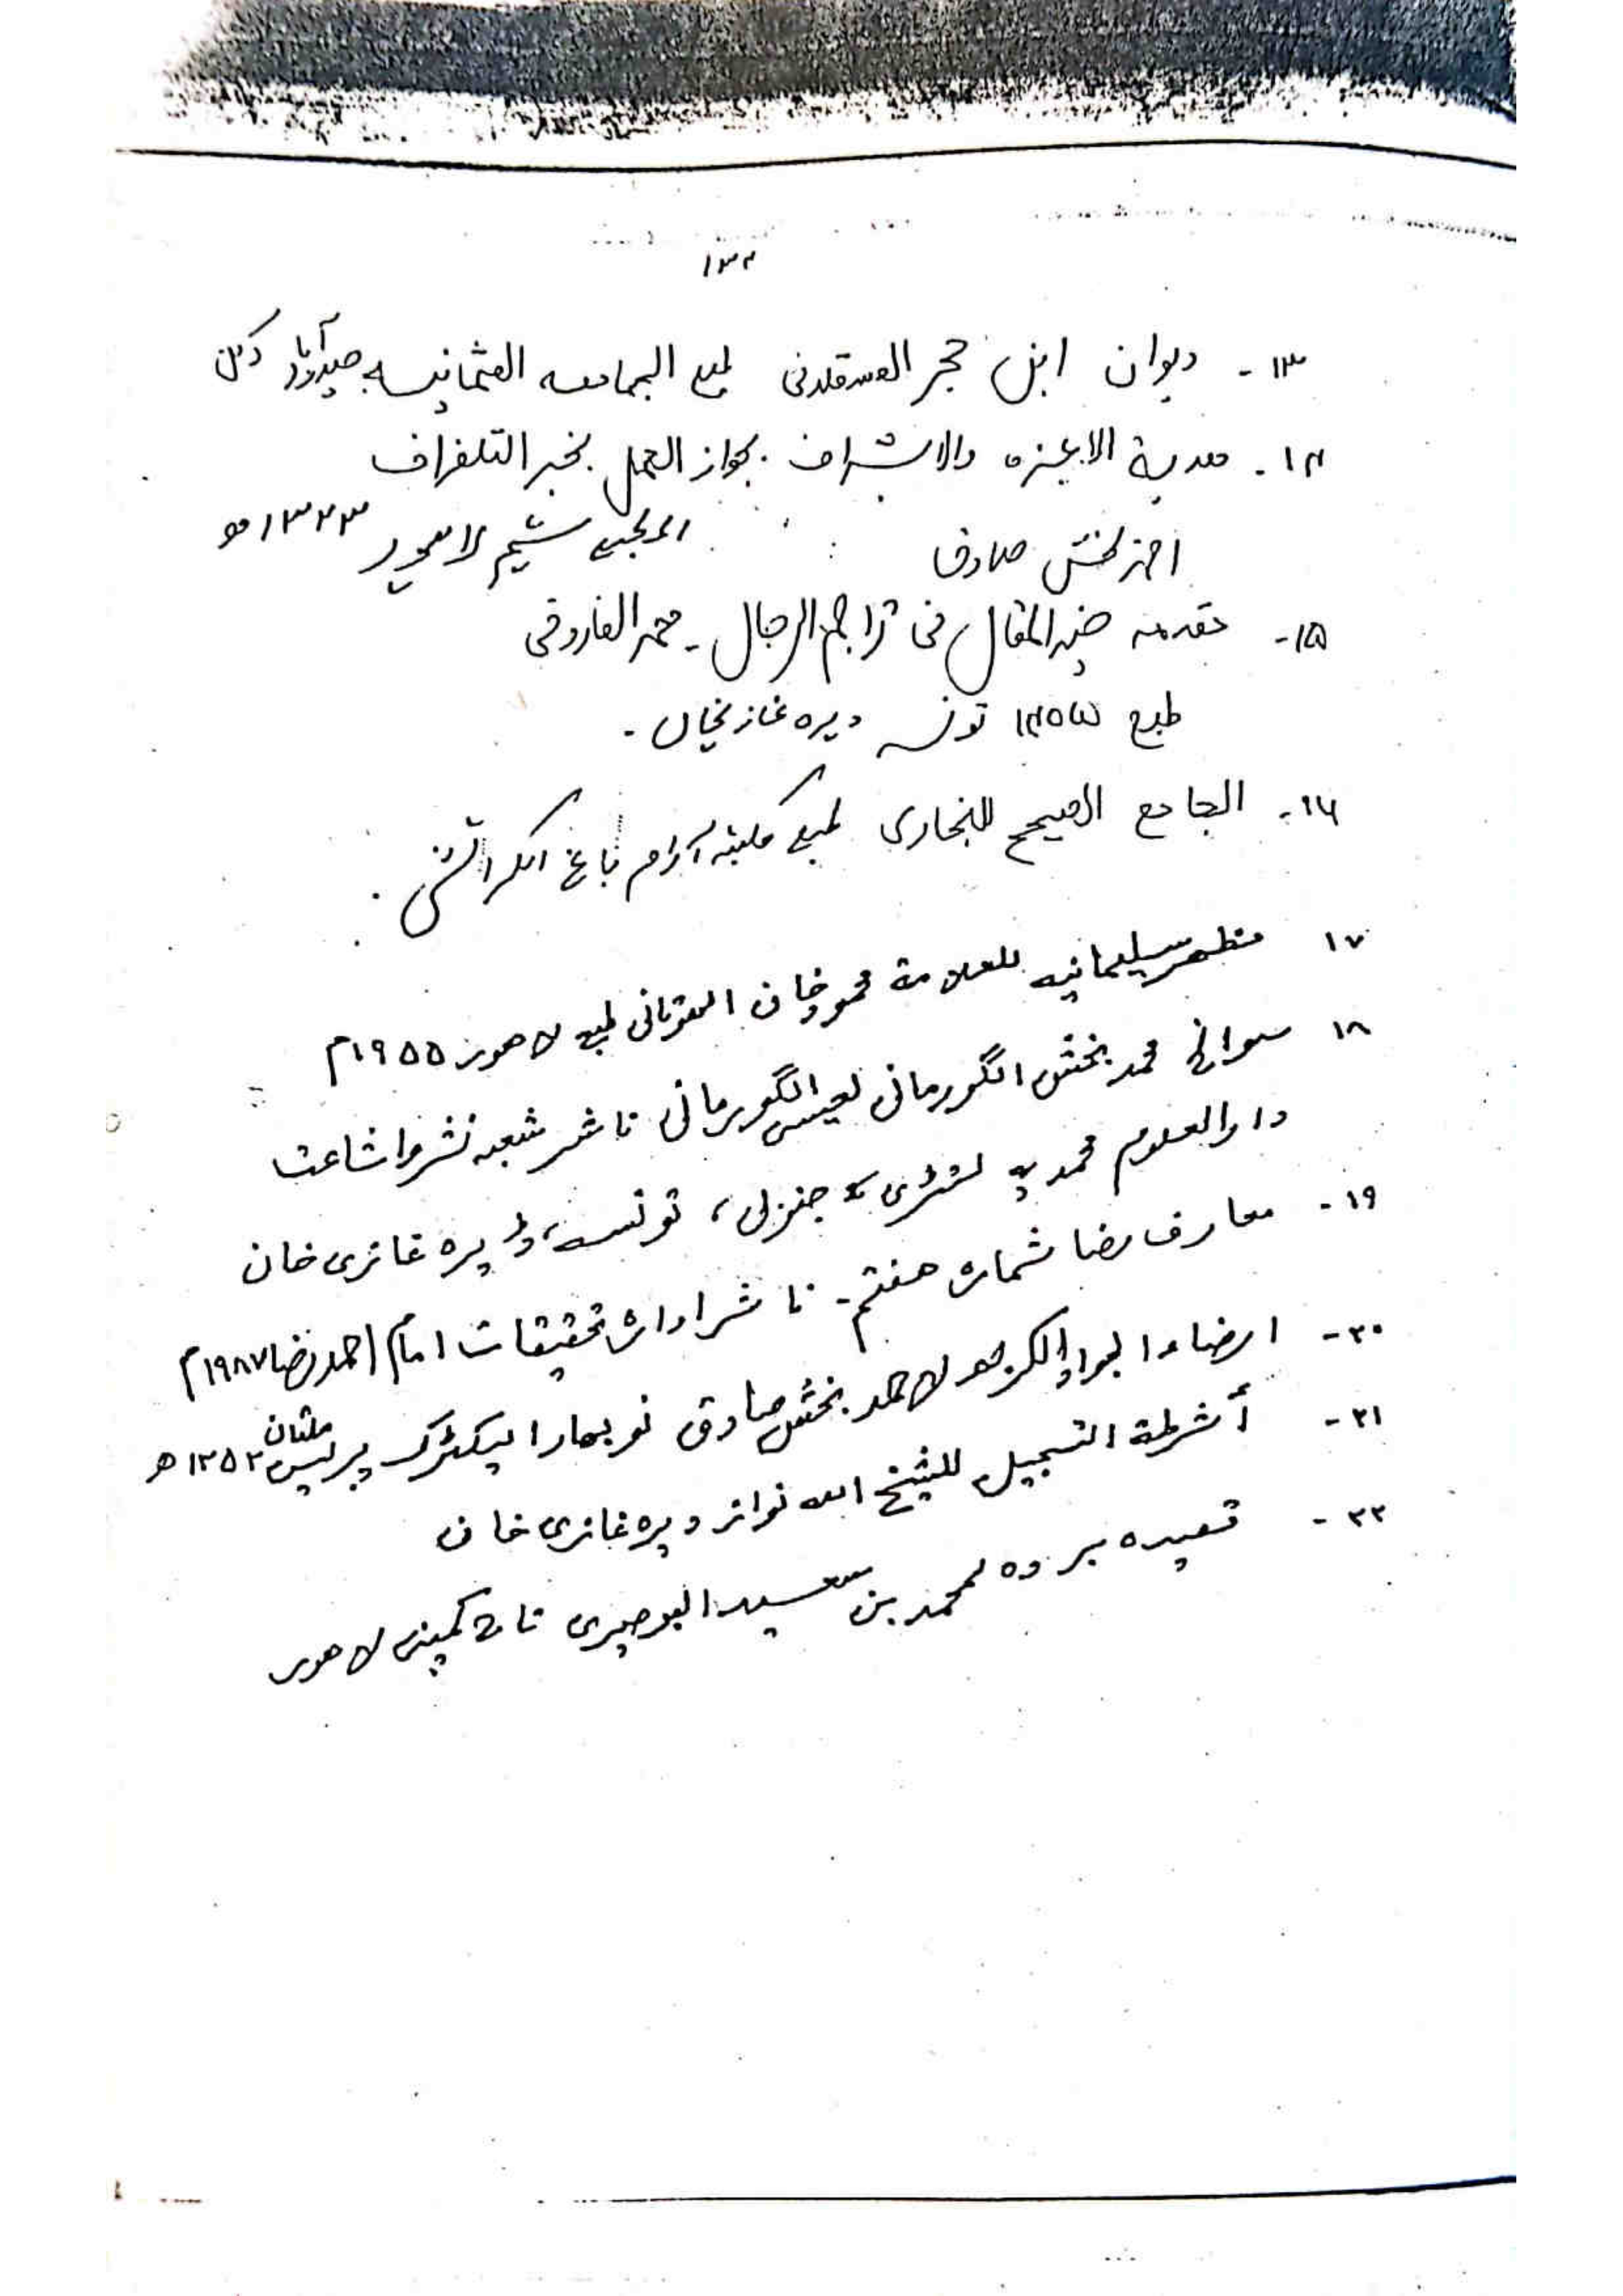 ۱۳۲
۱۳- دیوان ابن حجر العسقلانی طبع الجامعه العثمانیه حیدرآباد دکن
۱۴- هدیة الاعزه والاشراف بجواز العمل بخبر التلغراف
احمد بخش صادق المطبع سٹیم لاهور ۱۳۲۳ھ
۱۵- مقدمه خیر المقال فی تراجم الرجال - محمد الفاروقی
طبع تونسه دیره غازیخان -
۱۶- الجامع الصحیح للبخاری طبع مکتبه آرام باغ الکراتشی .
۱۷ منظهر سلیمانیه للعلامة محمود خان طبع لاهور ۱۹۵۵م
۱۸ سوانح محمد بخش الگورمانی لعیسی الگورمانی ناشر شعبه نشر واشاعت
دارالعلوم محمدیه جنوبی، تونسه، ڈیره غازی خان
۱۹- معارف رضا شماره هفتم - ناشر اداره تحقیقات امام احمد رضا ۱۹۸۷م
۲۰- لاحمد بخش صادق نوبهار الیکٹرک پریس ملتان ۱۳۵۲ھ
۲۱- أشرطة التسجیل للشیخ الله نواز دیره غازی خان
۲۲- قصیده برده لمحمد بن سعید البوصیری تاج کمپنی لاهور